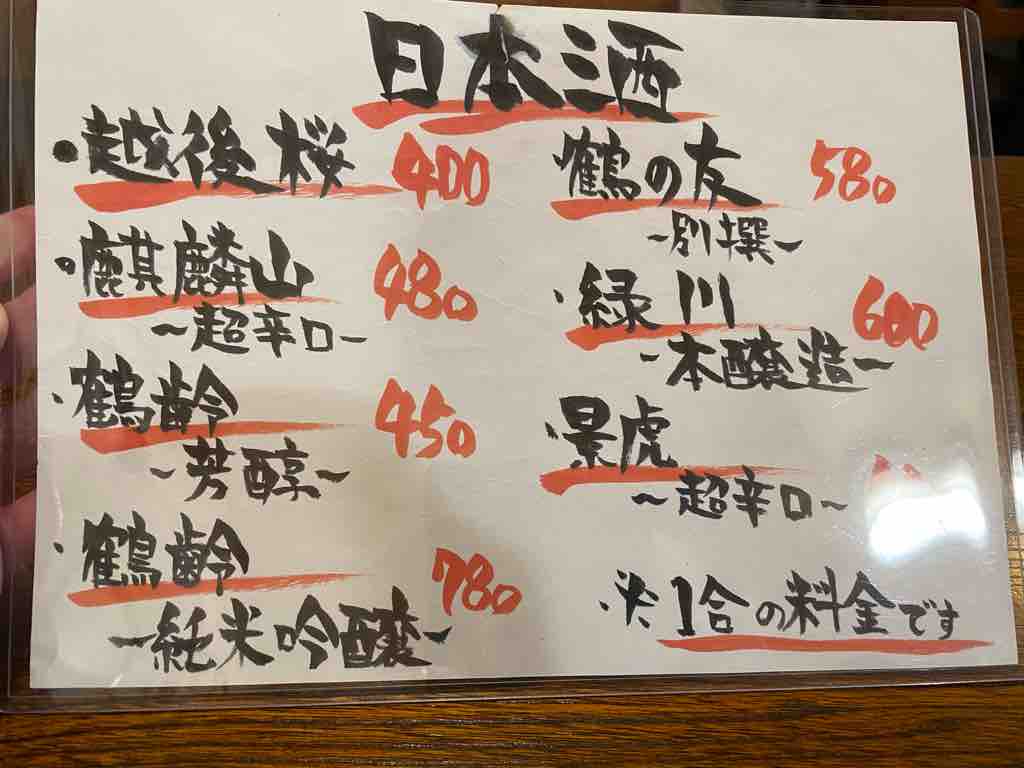 日本酒
・越後桜 400
・麒麟山 480
~超辛口~
・鶴齢 450
~芳醇~
・鶴齢 780
~純米吟醸~
・鶴の友 580
~別撰~
・緑川 600
~本醸造~
・景虎
~超辛口~
・※1合の料金です